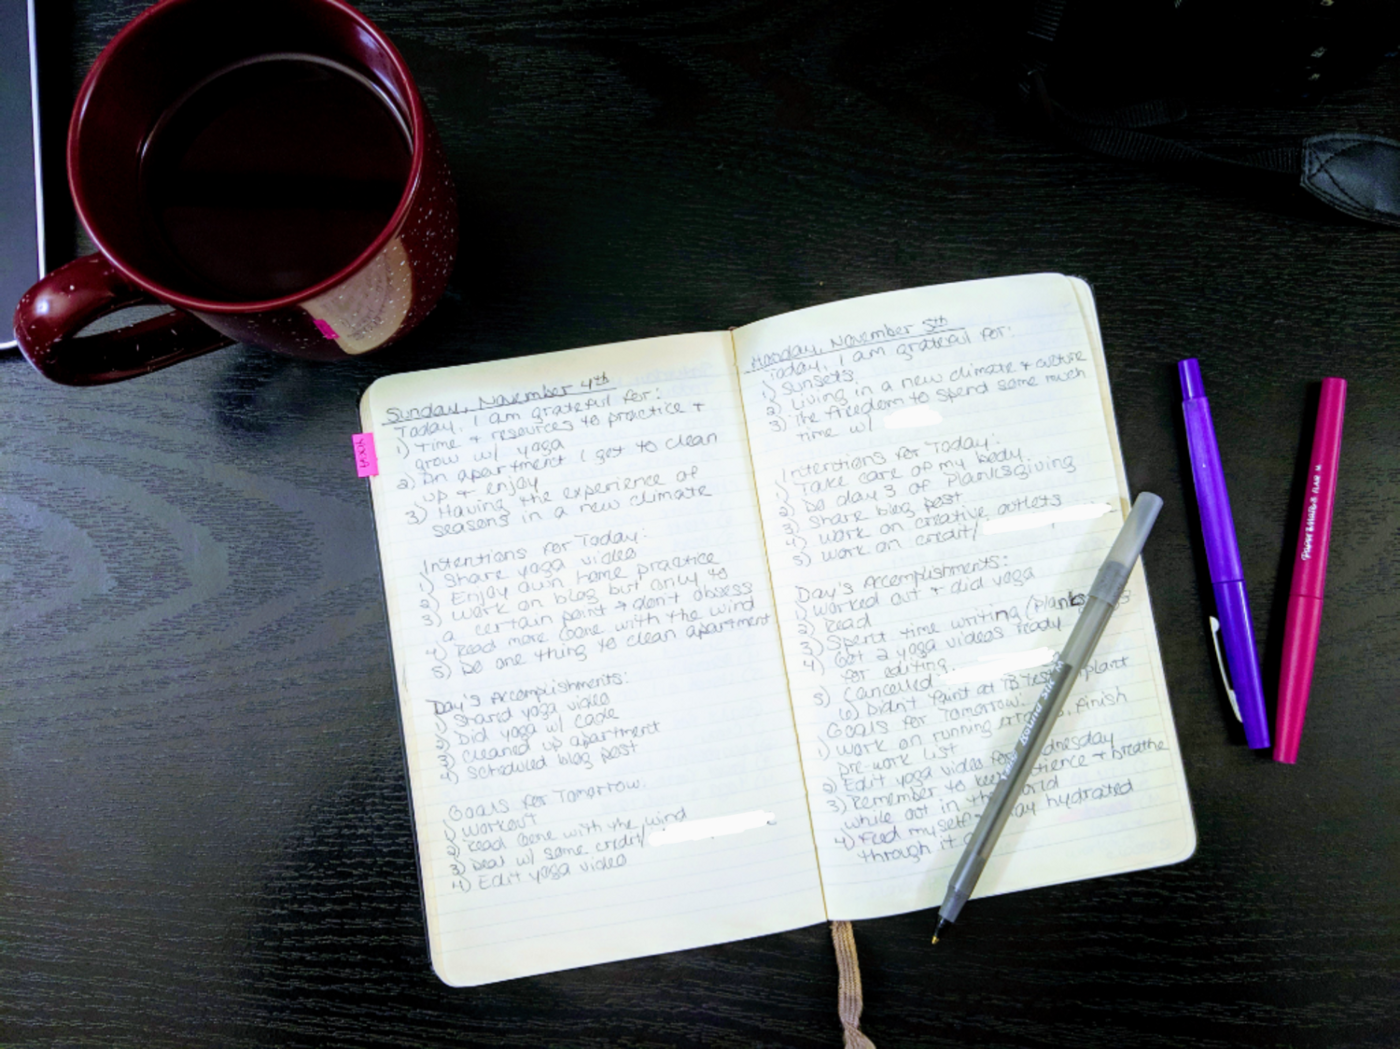 Sunday, November 4th
Today, I am grateful for:
1) Time + resources to practice +
grow w/ yoga
2) An apartment I get to clean
up + enjoy
3) Having the experience of
seasons in a new climate
Intentions for Today:
1) Share yoga video
2) Enjoy own home practice
3) Work on blog but only to
a certain point + don't obsess
4) Read more Gone with the wind
5) Do one thing to clean apartment
Day's Accomplishments:
1) Shared yoga video
2) Did yoga w/ Cade
3) Cleaned up apartment
4) Scheduled blog post
Goals for Tomorrow:
1) Workout
2) Read Gone with the wind
3) Deal w/ some credit/
4) Edit yoga video
Monday, November 5th
Today, I am grateful for:
1) Sunsets
2) Living in a new climate + culture
3) The freedom to spend some much
time w/
Intentions for Today:
1) Take care of my body
2) Do day 3 of Planksgiving
3) Share blog post
4) Work on creative outlets
5) Work on credit/
Day's Accomplishments:
1) Worked out + did yoga
2) Read
3) Spent time writing (Planks
4) Got 2 yoga videos ready
for editing.
5) Cancelled
6) Didn't faint at TB test
Goals for Tomorrow:
1) Work on running, finish
pre-work list
2) Edit yoga video for Wednesday
3) Remember to keep patience + breathe
while out in the world
4) Feed myself stay hydrated
through it
PAPER MATE FLAIR M